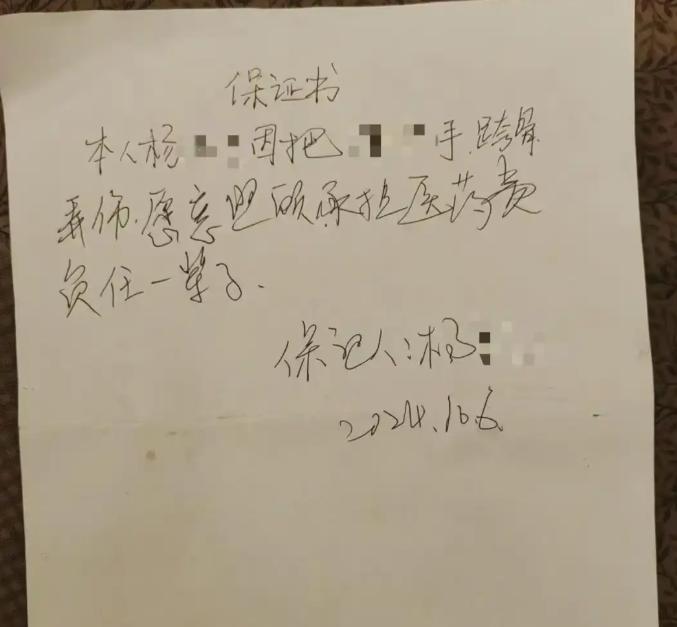 保证书
本人杨 因把 手.跨骨
弄伤.愿意照顾承担医药费
负任一辈子.
保记人:杨
2024.10.6.